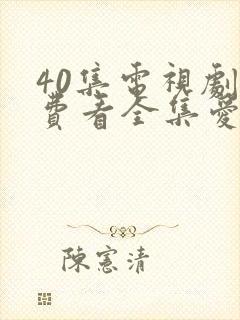 40集電視劇
費看全集愛
陳憲清